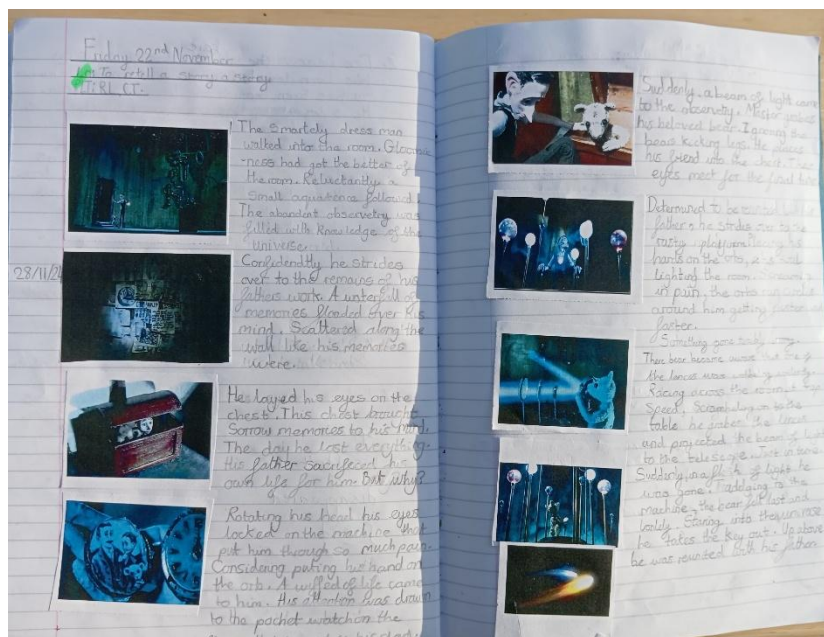 Friday 22nd November
To retell a story
The smartely dress man
walked into the room. Gloomie
-ness had got the better of
the room. Reluctantly a
small followed
The abandent observetry was
filled with knowledge of the
universe.
28/11/24
Confidendtly he strides
over to the remains of his
fathers work. A waterfall of
memories floaded over his
mind. Scattered along the
wall like his memories
were.
He layed his eyes on the
chest. This chest brought
sorrow memories to his mind.
The day he lost everything.
His father sacrifeced his
own life for him. But why?
Rotating his head his eyes
locked on the machine that
put him through so much pain.
Considering puting his hand on
the orb. A of life came
to him. His attention was drawn
to the pochet watch in the
Suddenly, a beam of light came
to the observetry.
his beloved bear. Ignoring the
bears kicking legs. He places
his friend into the chest. Their
eyes meet for the final time
Determined to be his
father he strides over to the
rusty platform.
hands on the orbs,
lighting the room.
in pain, the orbs
around him getting faster and
faster.
Something goes wrong
bear became aware that one of
the lences was
Racing across the room at
speed. Scrambeling on to the
table he the lences
and projected the beam of light
to the telescope. Just in time
Suddenly in a flick of light he
was gone. to the
machine, the bear felt lost and
lonley. Staring into the universe
he takes the key out. Up above
he was reunited with his father.